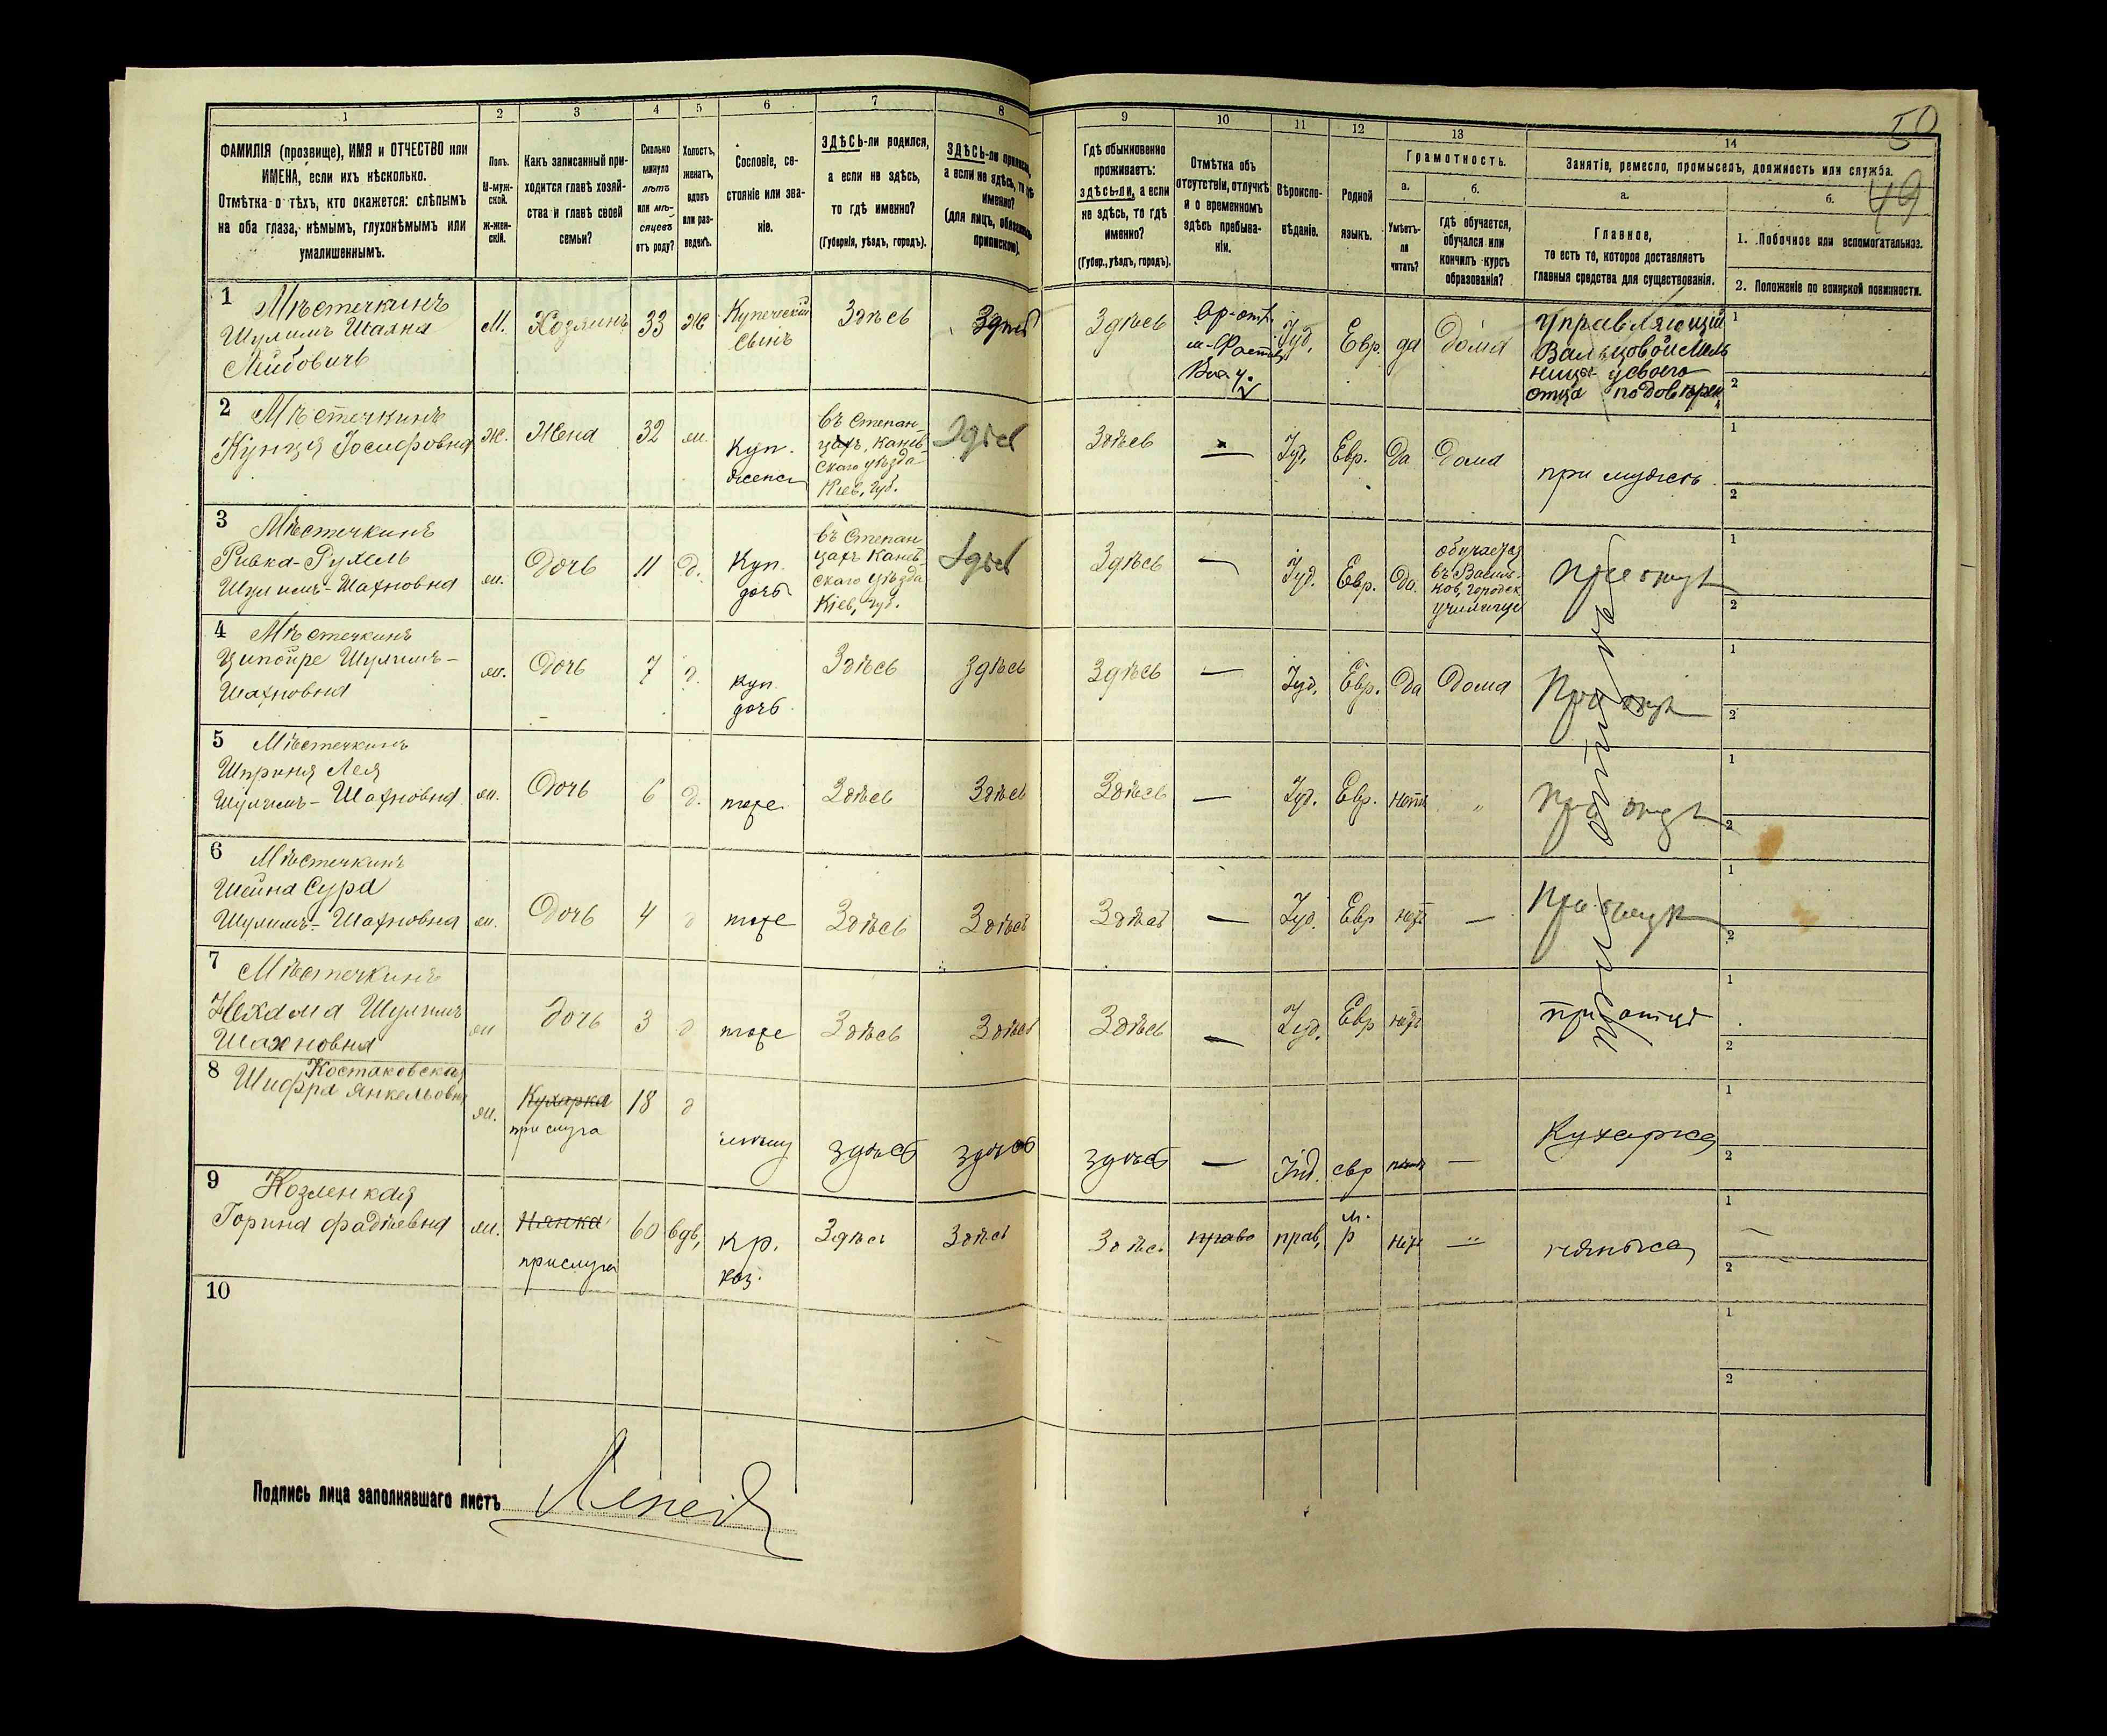 50
49
1 2 3 4 5 6 7 8 9 10 11 12 13 14
ФАМИЛІЯ (прозвище), ИМЯ и ОТЧЕСТВО или
ИМЕНА, если ихъ нѣсколько.
Отмѣтка о тѣхъ, кто окажется: слѣпымъ
на оба глаза, нѣмымъ, глухонѣмымъ или
умалишеннымъ.
Полъ.
М-муж-
ской.
Ж-жен-
скій.
Какъ записанный при-
ходится главѣ хозяй-
ства и главѣ своей
семьи?
Сколько
минуло
лѣтъ
или мѣ-
сяцевъ
отъ роду?
Холостъ,
женатъ,
вдовъ
или раз-
веденъ.
Сословіе, со-
стояніе или зва-
ніе.
ЗДѢСЬ-ли родился,
а если не здѣсь,
то гдѣ именно?
(Губернія, уѣздъ, городъ).
ЗДѢСЬ-ли
а если не здѣсь, то гдѣ
именно?
(для лицъ,
припискою).
Гдѣ обыкновенно
проживаетъ:
здѣсь-ли, а если
не здѣсь, то гдѣ
именно?
(Губер., уѣздъ, городъ).
Отмѣтка объ
отсутствіи, отлучкѣ
и о временномъ
здѣсь пребыва-
ніи.
Вѣроиспо-
вѣданіе.
Родной
языкъ.
Грамотность.
а. б.
Умѣетъ-
ли
читать?
гдѣ обучается,
обучался или
кончилъ курсъ
образованія?
Занятіе, ремесло, промыселъ, должность или служба.
а. б.
Главное,
то есть то, которое доставляетъ
главныя средства для существованія.
1. Побочное или вспомогательное.
2. Положеніе по воинской повинности.
1 Мѣстечкинъ
Шулимъ Шахна
Лейбовичъ
М. Хозяинъ 33 ж Купеческій
сынъ
Здѣсь Здѣсь Здѣсь
Іуд. Евр. да дома
Управляющій
Вальцовой мель
ницы у своего
отца
1
2
2 Мѣстечкинъ
Кунця Іосифовна
ж. Жена 32 м. Куп.
жена
въ Степан-
цахъ, Канев-
скаго уѣзда
Кіев. Губ.
Здѣсь Здѣсь — Іуд. Евр. Да Дома при мужѣ
1
2
3 Мѣстечкинъ
Ривка-Рухель
Шулимъ-Шахновна
ж. Дочь 11 д. Куп.
дочь
въ Степан
цахъ Канев-
скаго уѣзда
Кіев, Губ.
Здѣсь Здѣсь — Іуд. Евр. Да.
обучается
въ Василь-
ков. городск
училище
при отцѣ
1
2
4 Мѣстечкинъ
Ципойре Шулимъ-
Шахновна
ж. Дочь 7 д. куп.
дочь
Здѣсь Здѣсь Здѣсь — Іуд. Евр. Да Дома При отцѣ
1
2
5 Мѣстечкинъ
Шприня Лея
Шулимъ-Шахновна
ж. Дочь 6 д. тоже Здѣсь Здѣсь Здѣсь — Іуд. Евр. нѣтъ " При отцѣ
1
2
6 Мѣстечкинъ
Шейна Сура
Шулимъ-Шахновна
ж. Дочь 4 д тоже Здѣсь Здѣсь Здѣсь — Іуд. Евр нѣтъ — При отцѣ
1
2
7 Мѣстечкинъ
Нехама Шулимъ
Шахновна
ж дочь 3 д тоже Здѣсь Здѣсь Здѣсь — Іуд. Евр нѣтъ при отцѣ
1
2
8 Костаковская
Шифра Янкельовна
ж. Кухарка
прислуга
18 д здѣсь здѣсь здѣсь — Іуд. евр — Кухарка
1
2
9 Козленкая
Горина Фадѣевна
ж. Нянька
прислуга
60 вдв, кр.
каз.
Здѣсь Здѣсь Здѣсь право прав, м.
р
нѣтъ — нянька
1
2
10
1
2
Подпись лица заполнявшаго листъ